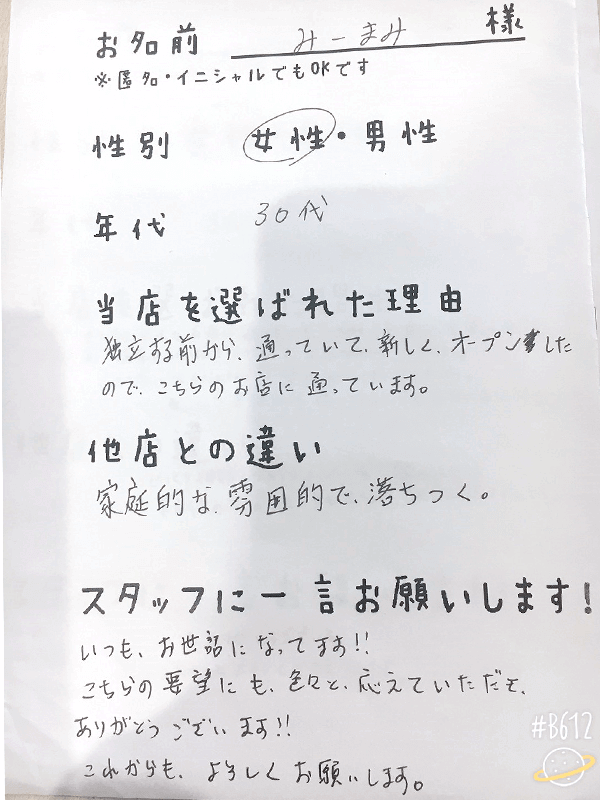 お名前 みーまみ 様
※匿名・イニシャルでもOKです
性別 女性・男性
年代 30代
当店を選ばれた理由
独立する前から、通っていて、新しく、オープンした
ので、こちらのお店に通っています。
他店との違い
家庭的な、雰囲的で、落ちつく。
スタッフに一言お願いします!
いつも、お世話になってます!!
こちらの要望にも、色々と、応えていただき、
ありがとうございます!!
これからも、よろしくお願いします。
#B612